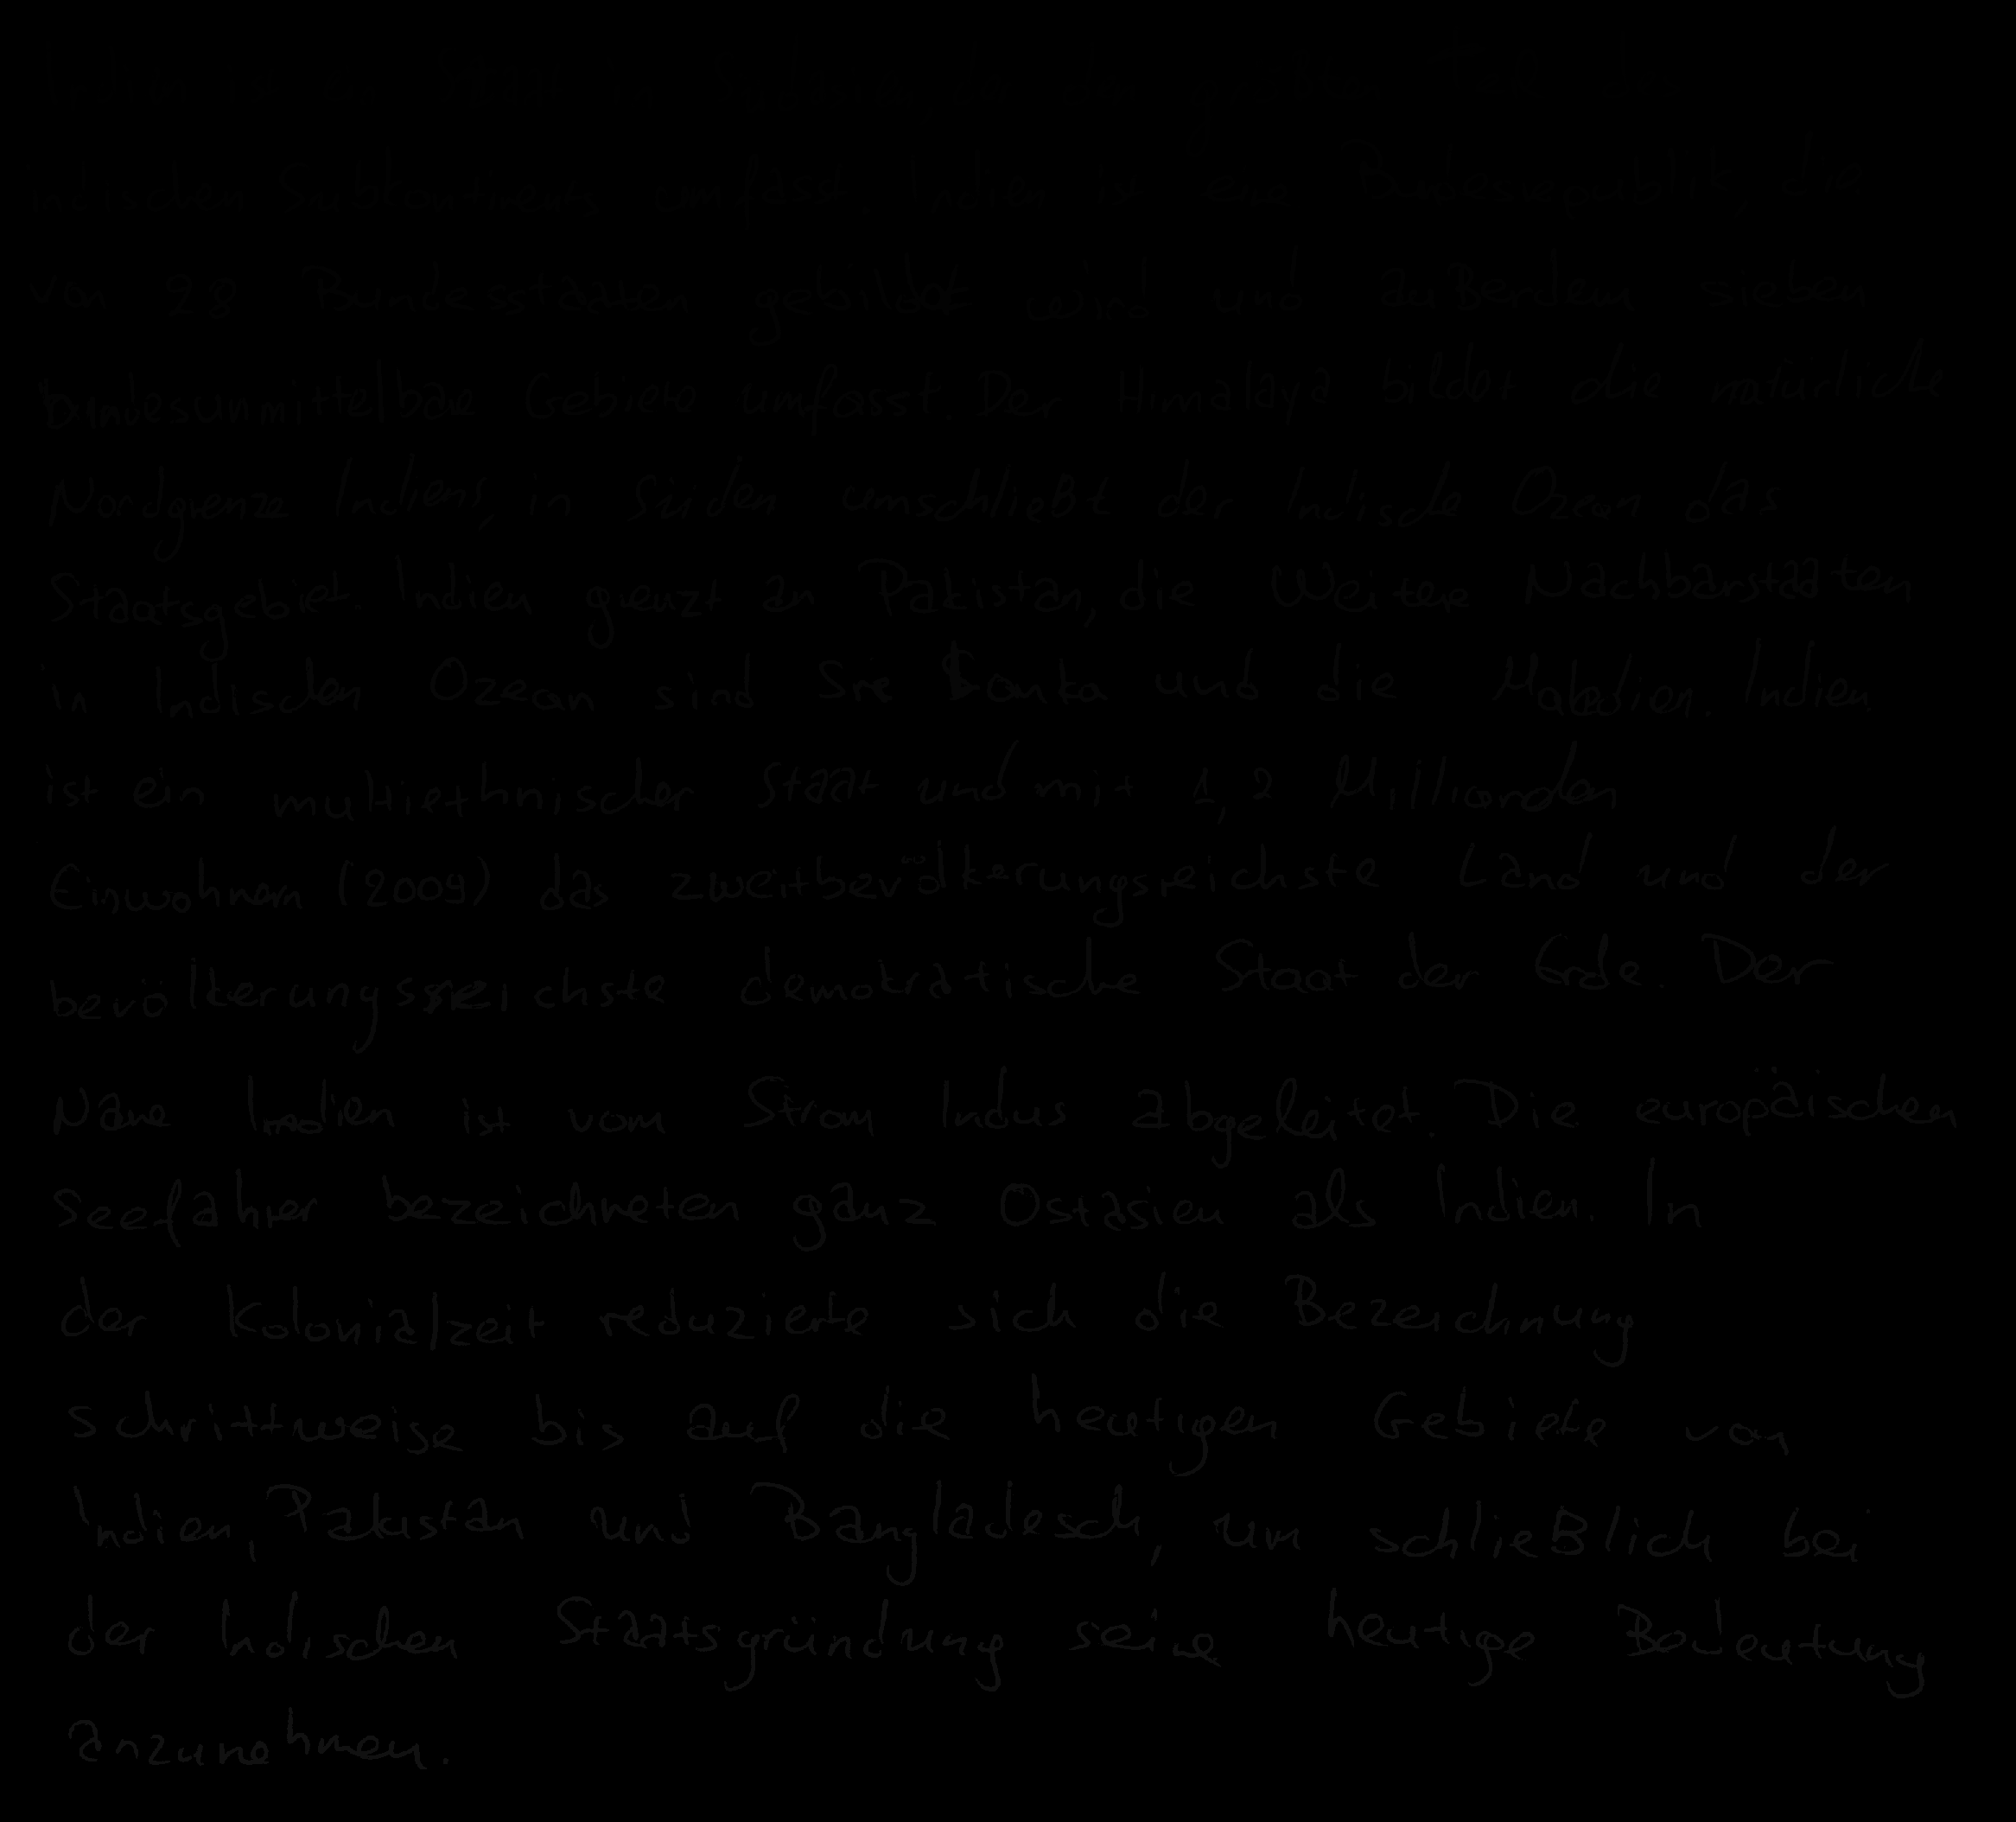 indischen Subkontinents umfasst. Indien ist eine Bundesrepublik, die
von 28 Bundesstaaten gebildet wird und außerdem sieben
bundesunmittelbare Gebiete umfasst. Der Himalaya bildet die natürliche
Nordgrenze Indiens, in Süden umschließt der Indische Ozean das
Staatsgebiet. Indien grenzt an Pakistan, die Weitere Nachbarstaaten
in Indischen Ozean sind Sri Lanka und die Malediven. Indien
ist ein multiethnischer Staat und mit 1,2 Milliarden
Einwohnern (2009) das zweitbevölkerungsreichste Land und der
bevölkerungsreichste demokratische Staat der Erde. Der
Name Indien ist vom Strom Indus abgeleitet. Die europäischen
Seefahrer bezeichneten ganz Ostasien als Indien. In
der Kolonialzeit reduzierte sich die Bezeichnung
schrittweise bis auf die heutigen Gebiete von
Indien, Pakistan und Bangladesch, um schließlich bei
der Indischen Staatsgründung seine heutige Bedeutung
anzunehmen.